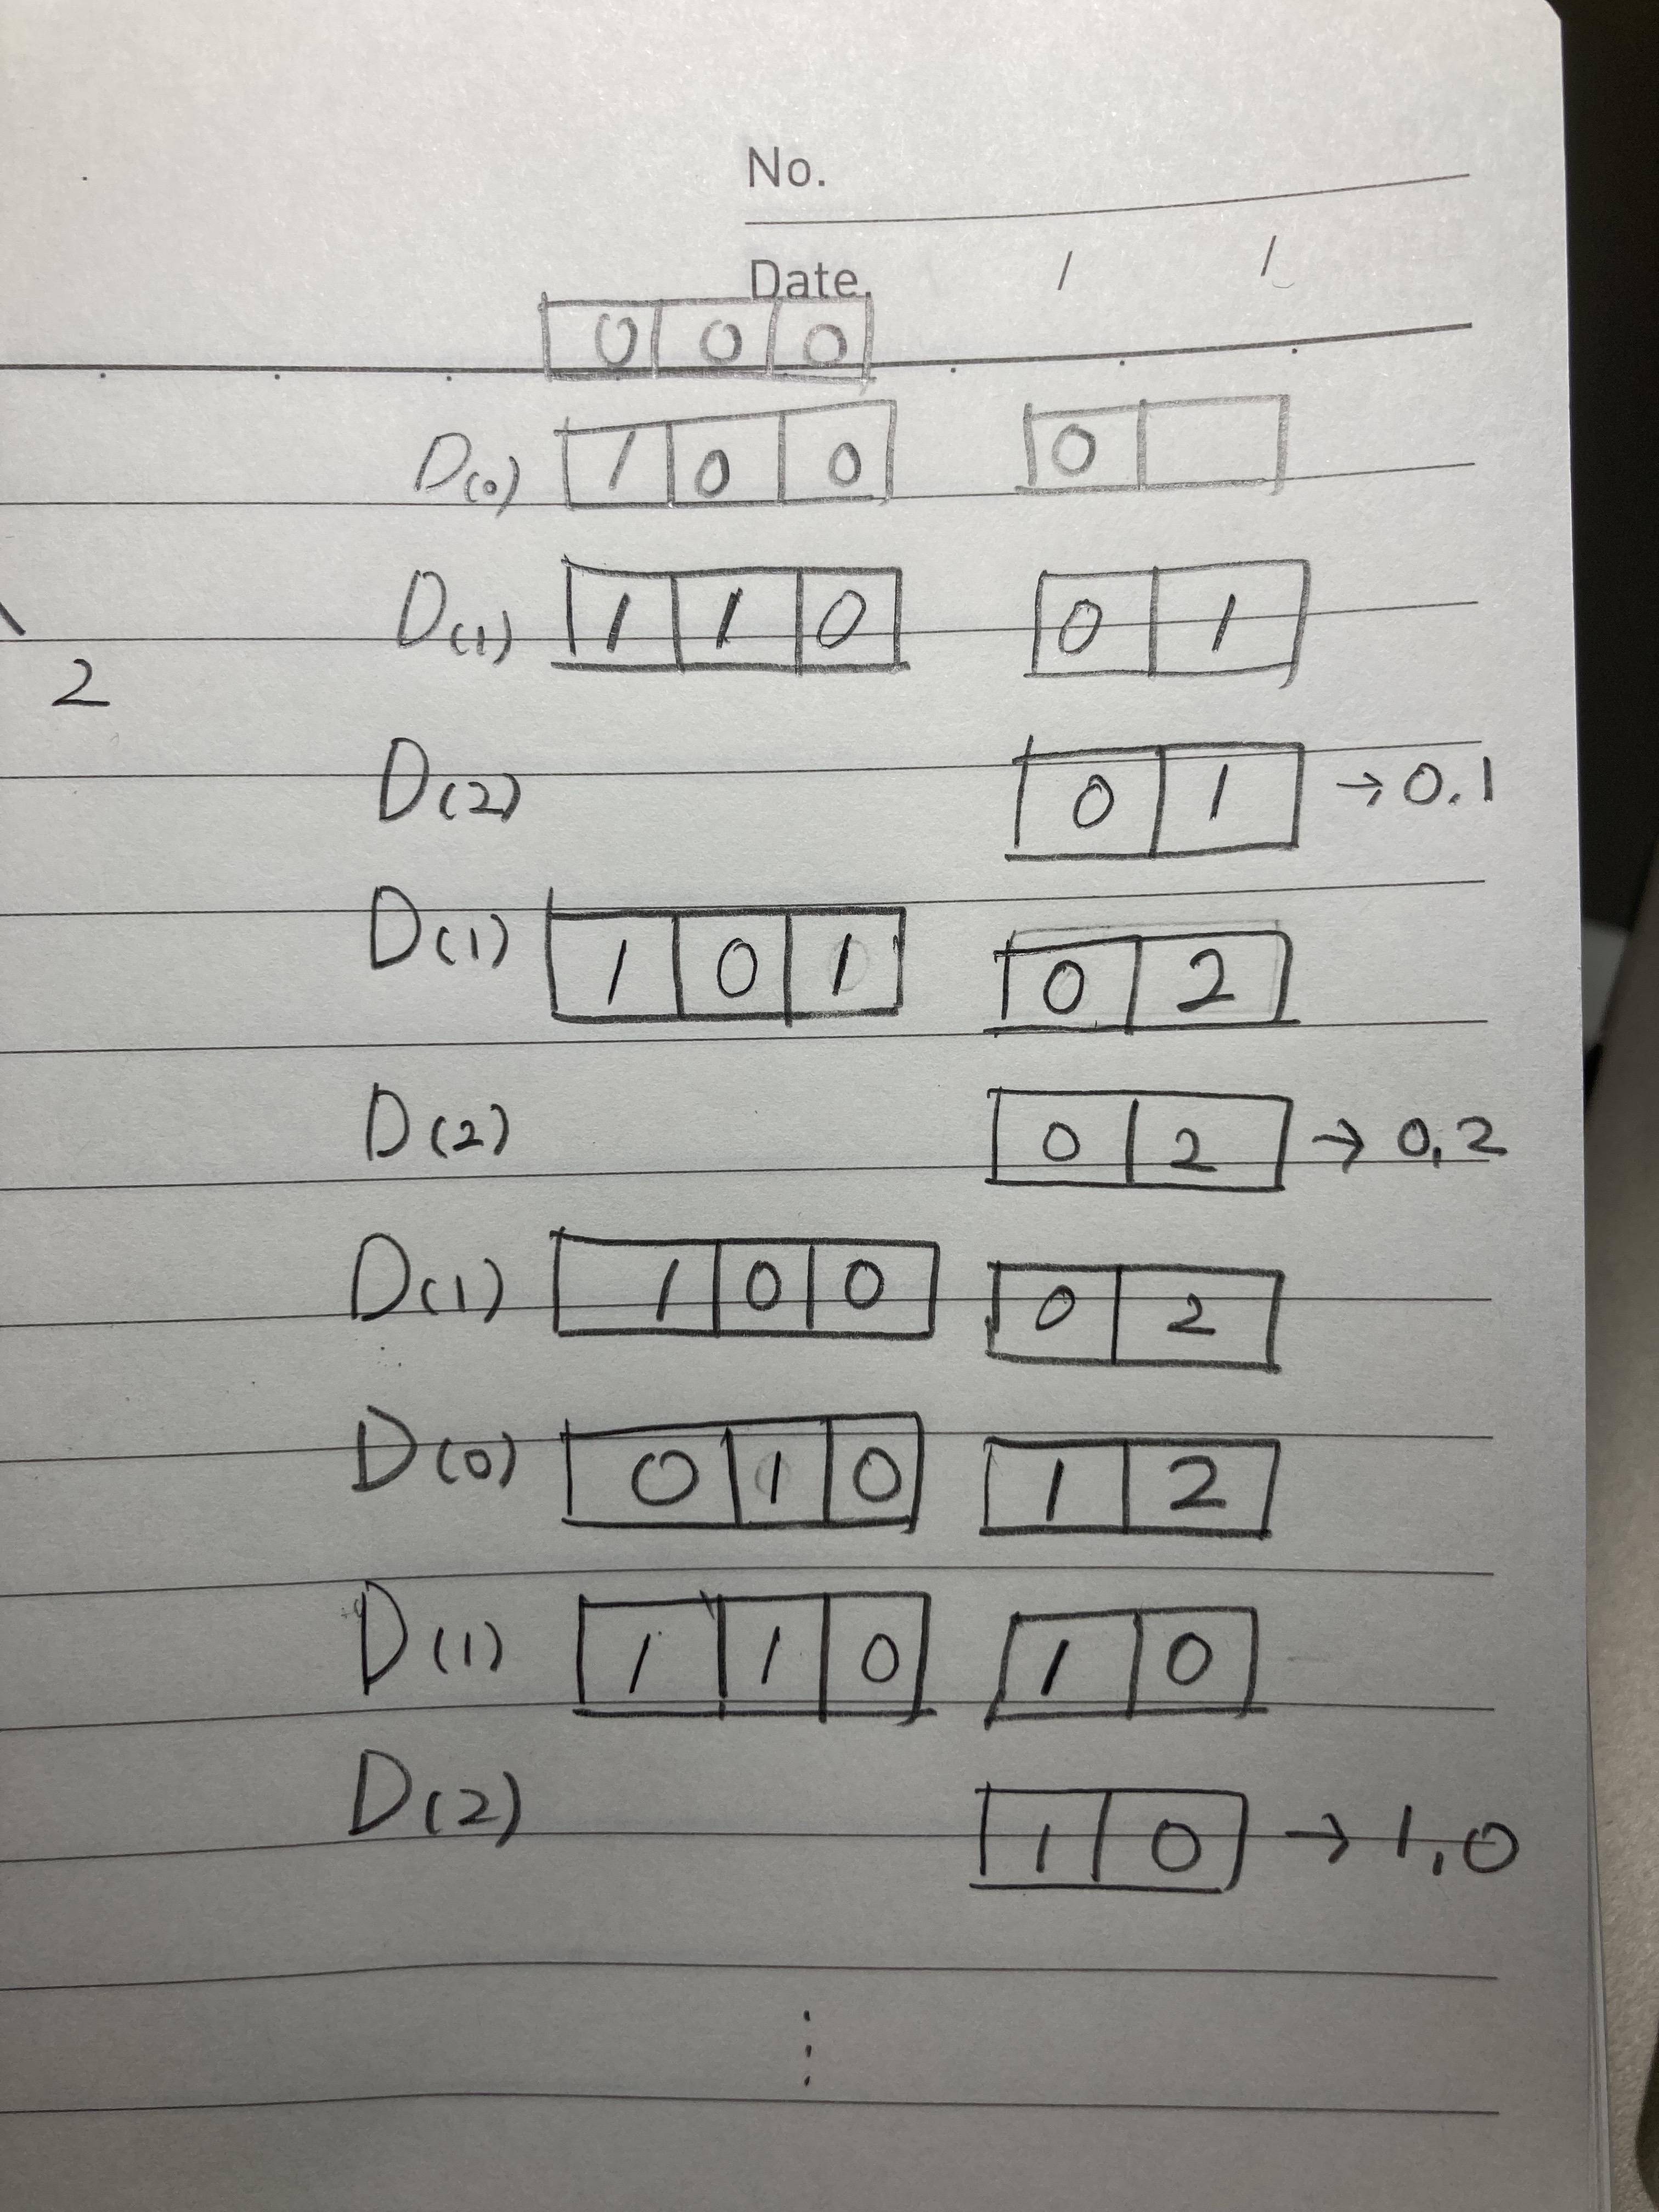 No.
Date. / /
0 0 0
D(0) 1 0 0 0
D(1) 1 1 0 0 1
2
D(2) 0 1 → 0.1
D(1) 1 0 1 0 2
D(2) 0 2 → 0,2
D(1) 1 0 0 0 2
D(0) 0 1 0 1 2
D(1) 1 1 0 1 0
D(2) 1 0 → 1,0
⋮